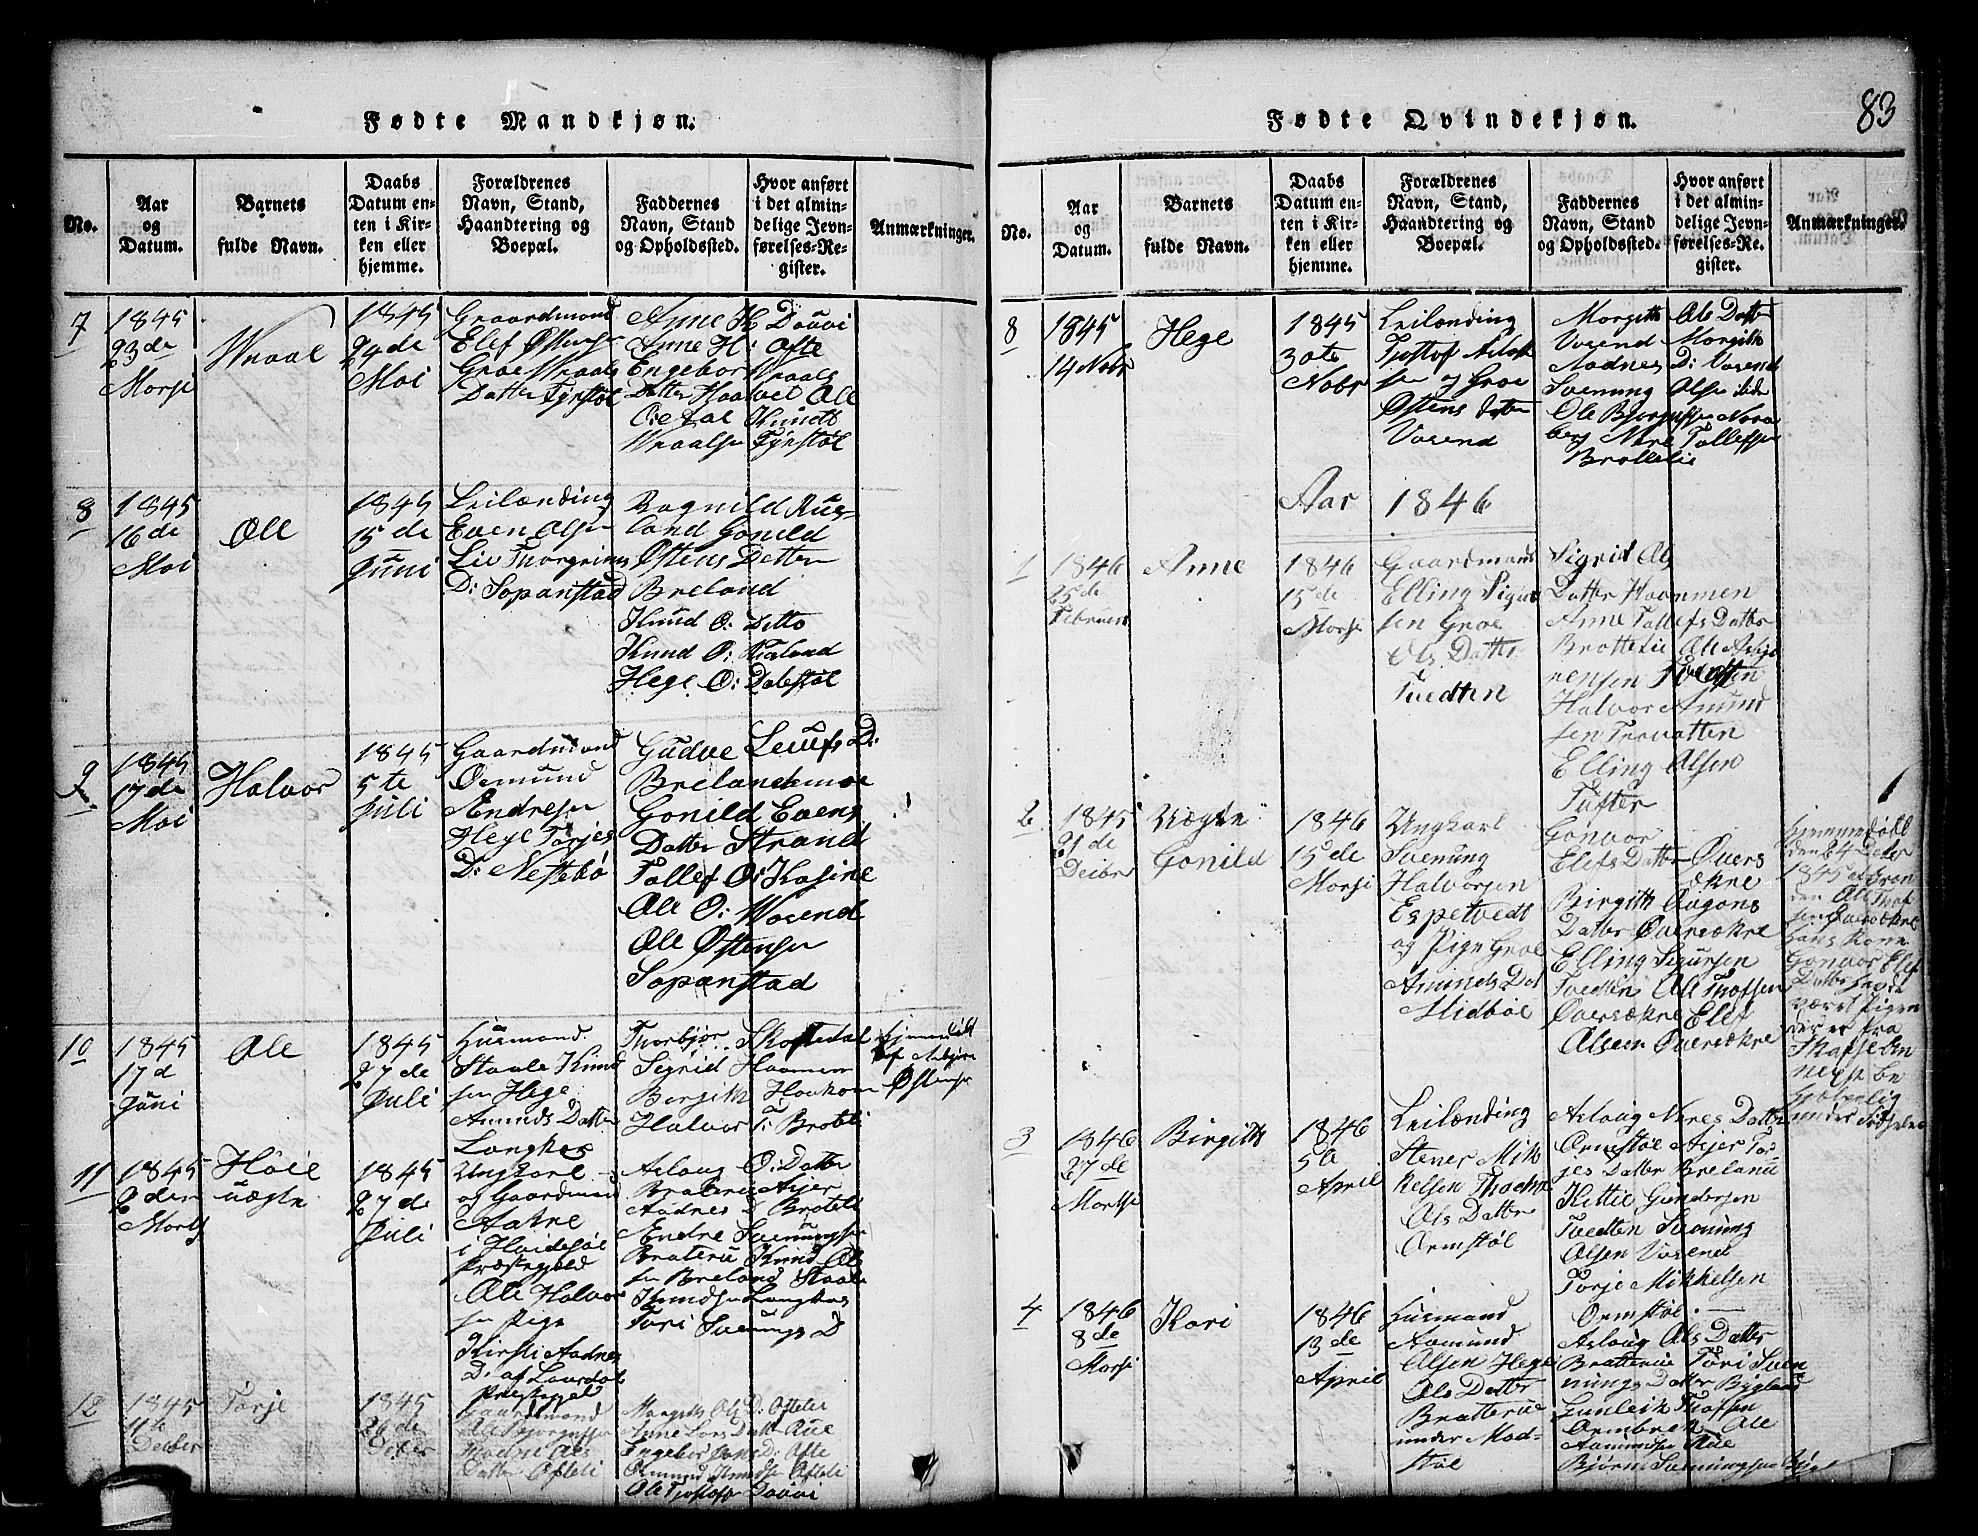 83
Fødte Mandkjøn.
No.
Aar
og
Datum.
Barnets
fulde Navn.
Daabs
Datum en-
ten i Kir-
ken eller
hjemme.
Forældrenes
Navn, Stand,
Haandtering og
Boepæl.
Faddernes
Navn, Stand
og Opholdssted.
Hvor anført
i det almin-
delige Jevn-
førelses-Re-
gister.
Anmærkninger.
7
1845
23de
Morsi
Wraal
1845
24de
Moi
Gaardmand
Elef Østensen
Groe Wraals
Datter Tynstøl
Anne H Dauvi
Anne H: Ofte
Engebor Wraals
Datter Haalvet Ole
Knudt
Wraalsen Tynstøl
8
1845
16de
Moi
Ole
1845
15de
Juni
Leilænding
Even Olsen
Liv Thorgrims
D: Sopanstad
Ragnild Rus-
land Gonild
Østens Datter
Breland
Knud O: Ditto
Knud O:
Hege O: Dalestøl
9
1845
17de
Moi
Halvor
1845
5te
Juli
Gaardmand
Osmund
Andresen
Hege Torjes
D: Nestebø
Gudve Leuufs D:
Brelandsmoe
Gonild Evens
Datter Strand
Tollef O: Kasine
Ole O: Wasend
Ole Østensen
Sopanstad
10
1845
17d
Juni
Ole
1845
27de
Juli
Husmand
Staale Knud
sen Hege
Amunds Datter
Langkos
Thorbjør Skofsedal
Sigrid Haamen
Bergith Haukom
Halvor T: Broteli
Hjemmedøbt
af Asbjørn
Østensen
11
1845
2den
Morts
Høie
uægte
1845
27de
Juli
Ungkarl
og Gaardmand
Aakne
i Hvidesøe
Præstegjeld
Ole Halvor
sen Pige
Kirsti Aadnes
D: af Laurdal
Præstegjeld
Aslaug O: Datter
Bratterie Asjer
Aadnes D Broteli
Endre Svenungsen
Braterie Knud Ols
sen Breland Staale
Knudsen Langkos
Tori Svenungs D
12
1845
4de
Decber
Torje
1845
26de
Octber
Gaardmand
Ole Bjorgufsen
Ols
Datter Ofteli
Margith Ols D: Ofteli
Anne Lars Datt Aue
Engebor D: Ofte
Osmund Knudsen Ofteli
Ole Tjostolfs Dauvi
Fødte Qvindekjøn.
No.
Aar
og
Datum.
Barnets
fulde Navn.
Daabs
Datum en-
ten i Kir-
ken eller
hjemme.
Forældrenes
Navn, Stand,
Haandtering og
Boepæl.
Faddernes
Navn, Stand
og Opholdssted.
Hvor anført
i det almin-
delige Jevn-
førelses-Re-
gister.
Anmærkninger.
8
1845
14 Nobr
Hege
1845
30te
Nobr
Leilænding
Tjostof Aslak
sen og Groe
Østens Datter
Vasend
Morgith Ols Datter
Vasend Morgith
Aadnes D: Vasend
Svenung Olsen ibde
Ole Bjorgufsen Nora
berg Nere Tallefsen
Brattelie
Aar 1846
1
1846
25de
Februar
Anne
1846
15de
Morsi
Gaardmand
Elling Sigur
sen Groe
Ols Datter
Tvedten
Sigrid Ols
Datter Haammen
Anne Tallefs Datter
Brattelie Ole Asbjø
rensen Tvedten
Halvor Amund
sen Trovatten
Elling Olsen
Tufter
2
1845
21de
Deibr
Uægte
Gonild
1846
15de
Morsi
Ungkarl
Svenung
Halvorsen
Espetvedt
og Pige Groe
Amunds Dat
Midbøe
Gonvor
Elefs Datter Øvers
økre
Birgith Aagons
Datter Øversøkre
Elling Sigursen
Tvedten Ole Thofsen
Øversøkre Elef
Olsen Øversøkre
Hjemmedøbt
den 24 Deibr
1845 af Gran
den Ole Thof
sen Øversøkre
Hans Kone
Gonvor Elef
Datter have
været Pigen
der er fra
Skafse En
nerst be
hjelpelig
under Fødselen
3
1846
27de
Mortsi
Birgith
1846
5te
April
Leilænding
Stener Mik
kelsen Thone
Ols Datter
Ormstøl
Aslaug Neres Datter
Ormstøl Asjer Tor
jes Datter Breland
Kittil Gundersen
Tvedten Svenung
Olsen Vasend
Torje Mikkelsen
Ormstøl.
4
1846
8de
Morsi
Kari
1846
13de
April
Husmand
Aamund
Olsen Hege
Ols Datter
Bratterue
under Mod-
støl
Aslaug Ols Datter
Bratterue Tori Sven
nungs Datter Bygland
Gunleik Thofsen
Ormbrek Ole
Aamundsen Aue
Bjørn Svenningsen